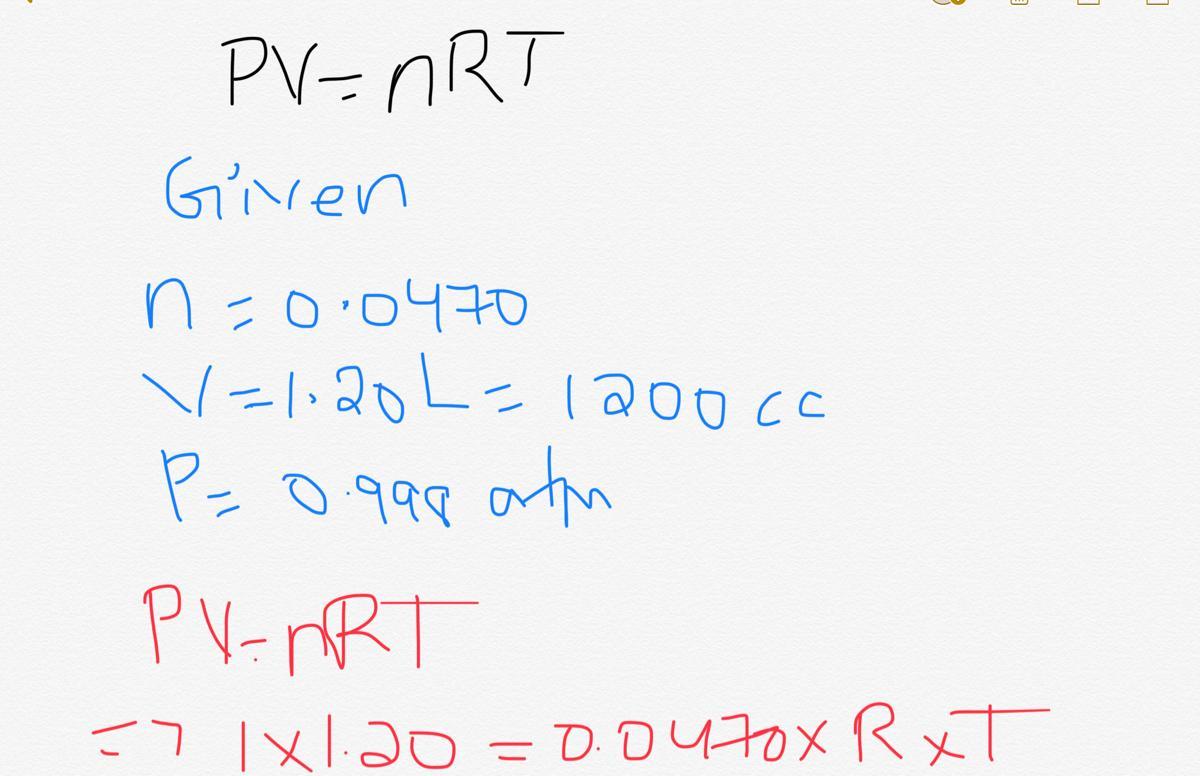 PV=nRT
Given
n = 0.0470
V=1.20L = 1200 cc
P= 0.998 atm
PV=nRT
=> 1x1.20 = 0.0470x R xT